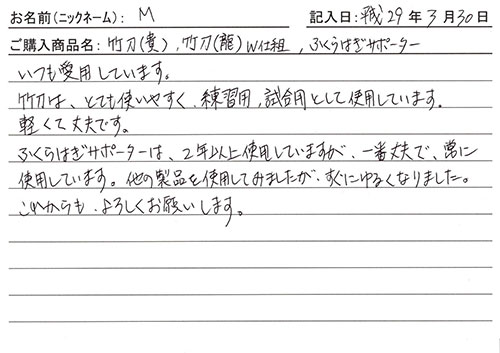 お名前(ニックネーム): M 記入日:平成29年3月30日
ご購入商品名:竹刀(貴),竹刀(龍)W仕組,ふくらはぎサポーター
いつも愛用しています。
竹刀は、とても使いやすく、練習用,試合用として使用しています.
軽くて丈夫です。
ふくらはぎサポーターは、2年以上使用していますが、一番丈夫で、常に
使用しています。他の製品を使用してみましたが、すぐにゆるくなりました。
これからも、よろしくお願いします。